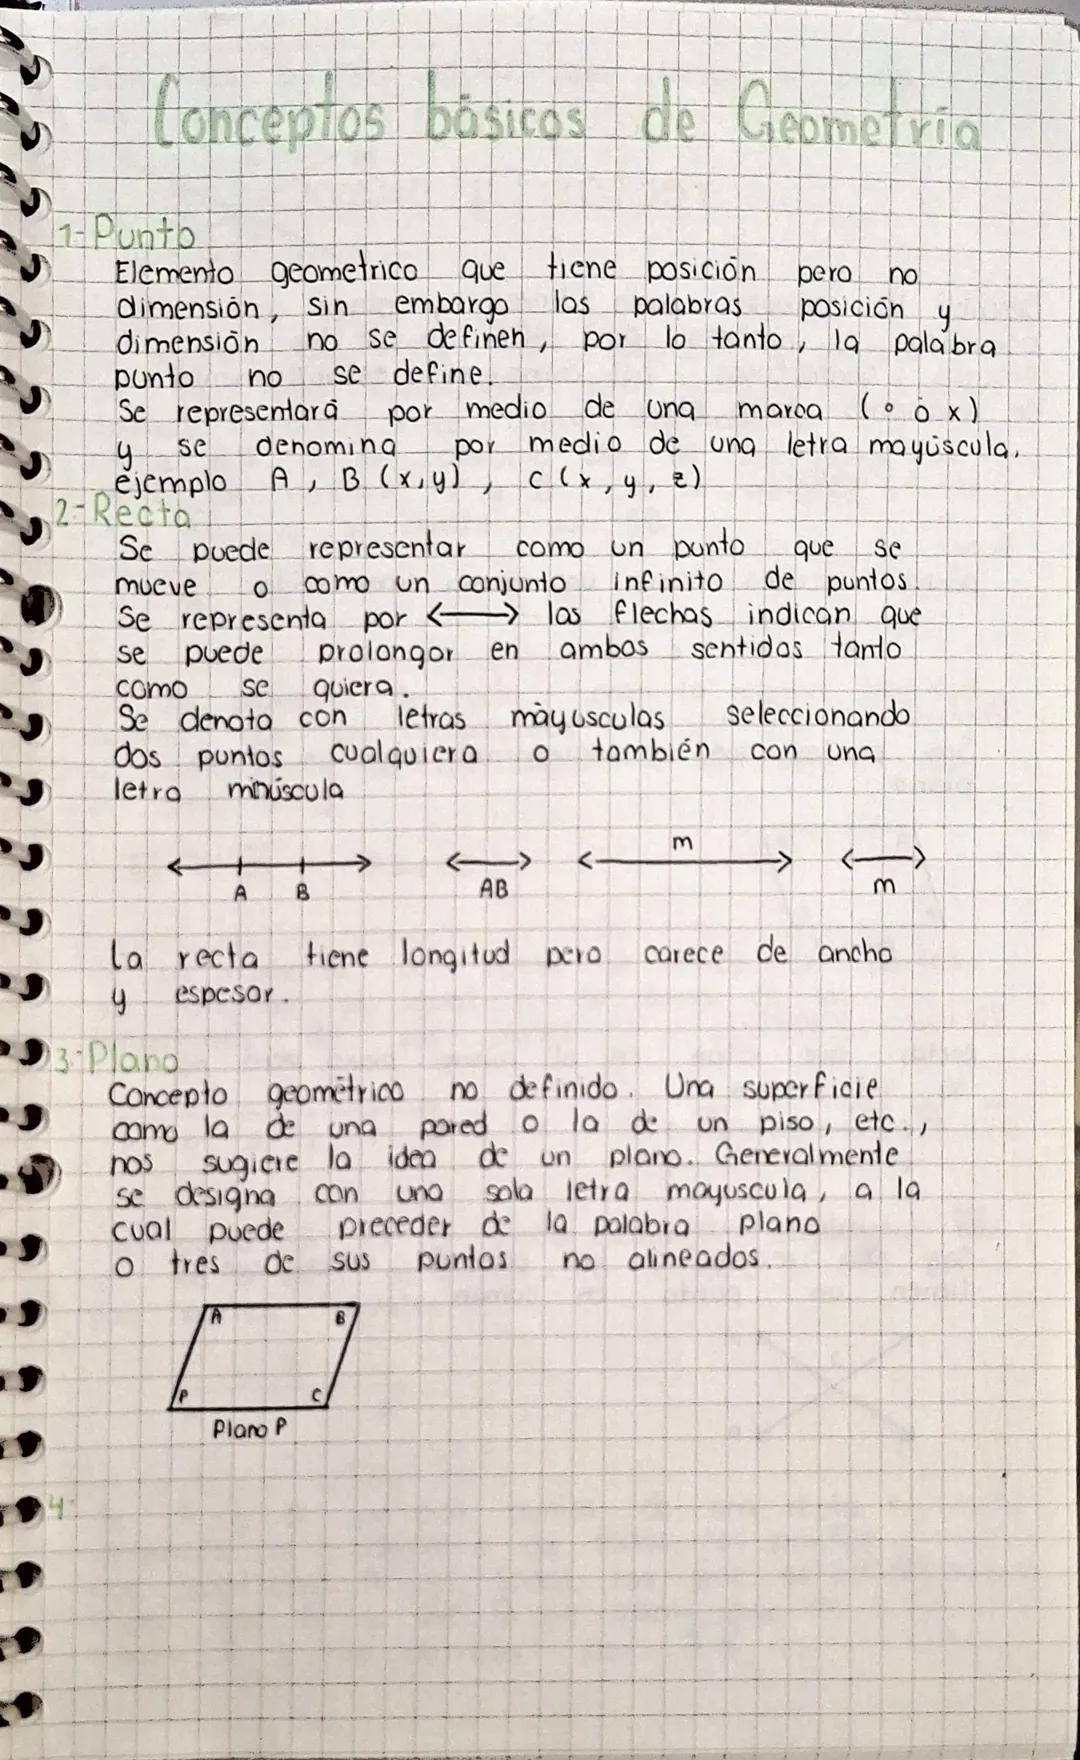 Conceptos básicos de Geometría
1-Punto
Elemento geometrico que tiene posición pero no
dimensión, sin embargo las palabras posición y
dimensión no se definen, por lo tanto, la palabra
punto no se define.
Se representará por medio de una marca (° ó x)
y se denomina por medio de una letra mayúscula,
ejemplo A, B (x,y), C (x, y, z)
2-Recta
Se puede representar como un punto que se
mueve o como un conjunto infinito de puntos.
Se representa por ⟷ las flechas indican que
se puede prolongar en ambos sentidos tanto
como se quiera.
Se denota con letras máyusculas seleccionando
dos puntos cualquiera o también con una
letra minúscula
m
A B AB m
La recta tiene longitud pero carece de ancho
y espesor.
3-Plano
Concepto geométrico no definido. Una superficie
como la de una pared o la de un piso, etc.,
nos sugiere la idea de un plano. Generalmente
se designa con una sola letra mayuscula, a la
cual puede preceder de la palabra plano
o tres de sus puntos no alineados.
A B
P C
Plano P
4-